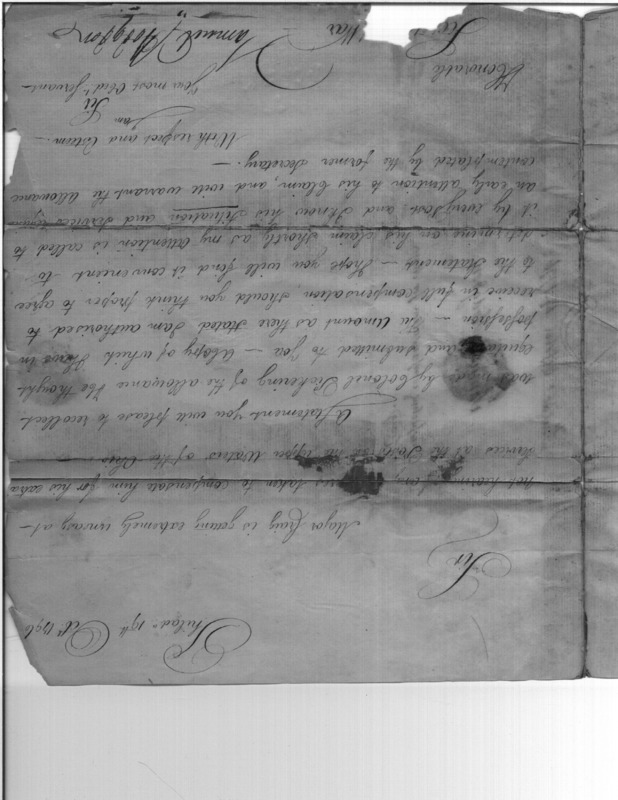 Philad.ª 19th Octr 1796
Sir
Major Craig is getting extremely uneasy at
not hearing of any taken to compensate him for his extra
services at the Posts on the upper Waters of the Ohio. —
A Statement you will please to recollect
was made by Colonel Pickering of the allowance He thought
and submitted to you — A Copy of which I have in
possession — The Amount as there stated I am authorised to
receive in full compensation should you think proper to agree
to the Statement — I hope you will find it convenient to
determine on his claim shortly as my attention is called to
it by every Post and I know his Situation and services
an early attention to his Claim, and will warrant the allowance
contemplated by the former Secretary. —
With respect and Esteem. —
I am
Sir
Your most Obedt Servant
Samuel Hodgdon
Honorable
War